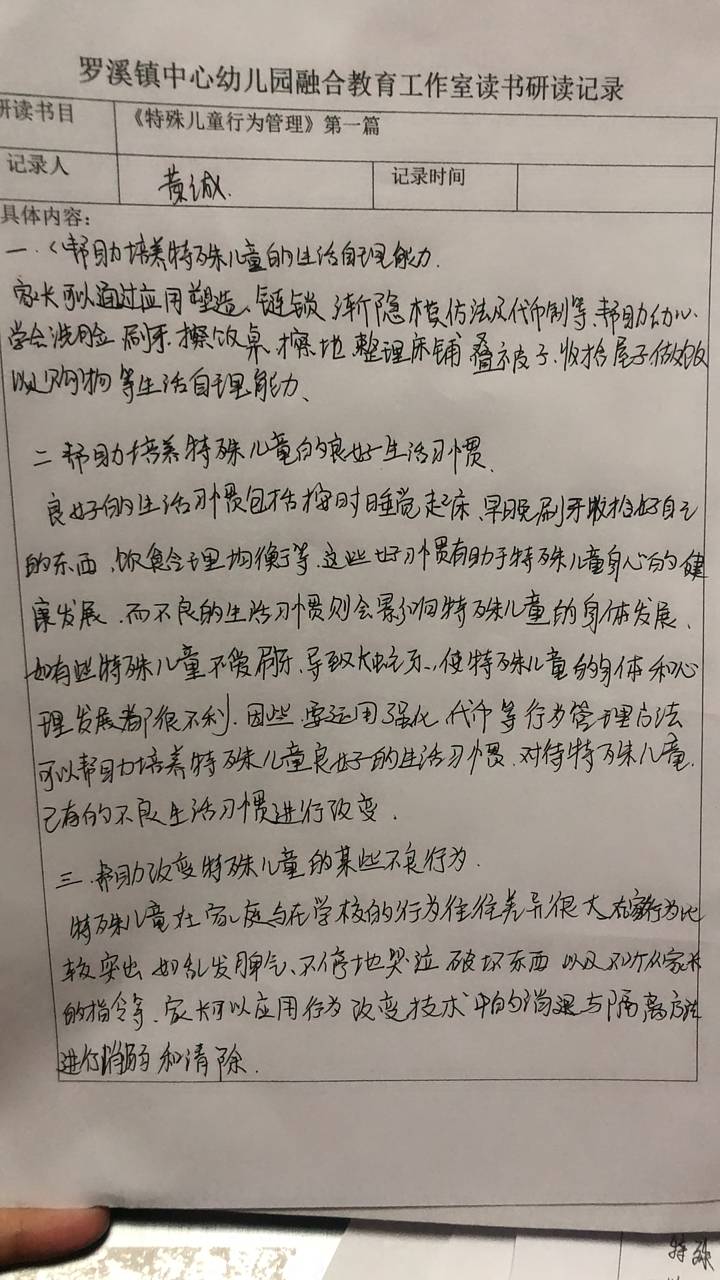 罗溪镇中心幼儿园融合教育工作室读书研读记录
研读书目 《特殊儿童行为管理》第一篇
记录人 黄诚. 记录时间
具体内容：
一.帮助培养特殊儿童的生活自理能力.
家长可以通过应用塑造、链锁 渐隐 模仿法及代币制等、帮助幼儿
学会洗脸 刷牙.擦饭桌.擦地 整理床铺 叠被子.收拾屋子做饭
以及购物等生活自理能力、
二 帮助培养特殊儿童的良好生活习惯.
良好的生活习惯包括按时睡觉起床、早晚刷牙收拾好自己
的东西、饮食合理均衡等.这些好习惯有助于特殊儿童身心的健
康发展.而不良的生活习惯则会影响特殊儿童的身体发展、
如有些特殊儿童不爱刷牙、导致蛀牙.,使特殊儿童的身体和心
理发展都很不利.因些.要运用强化、代币等行为管理方法
可以帮助培养特殊儿童良好的生活习惯.对待特殊儿童.
已有的不良生活习惯进行改变.
三.帮助改变特殊儿童的某些不良行为.
特殊儿童在家庭与在学校的行为往往差异很大 在家行为比
较突出 如乱发脾气、不停地哭泣 破坏东西 以及不听从家长
的指令等、家长可以应用行为改变技术中的消退与隔离方法
进行消弱和清除.
特殊